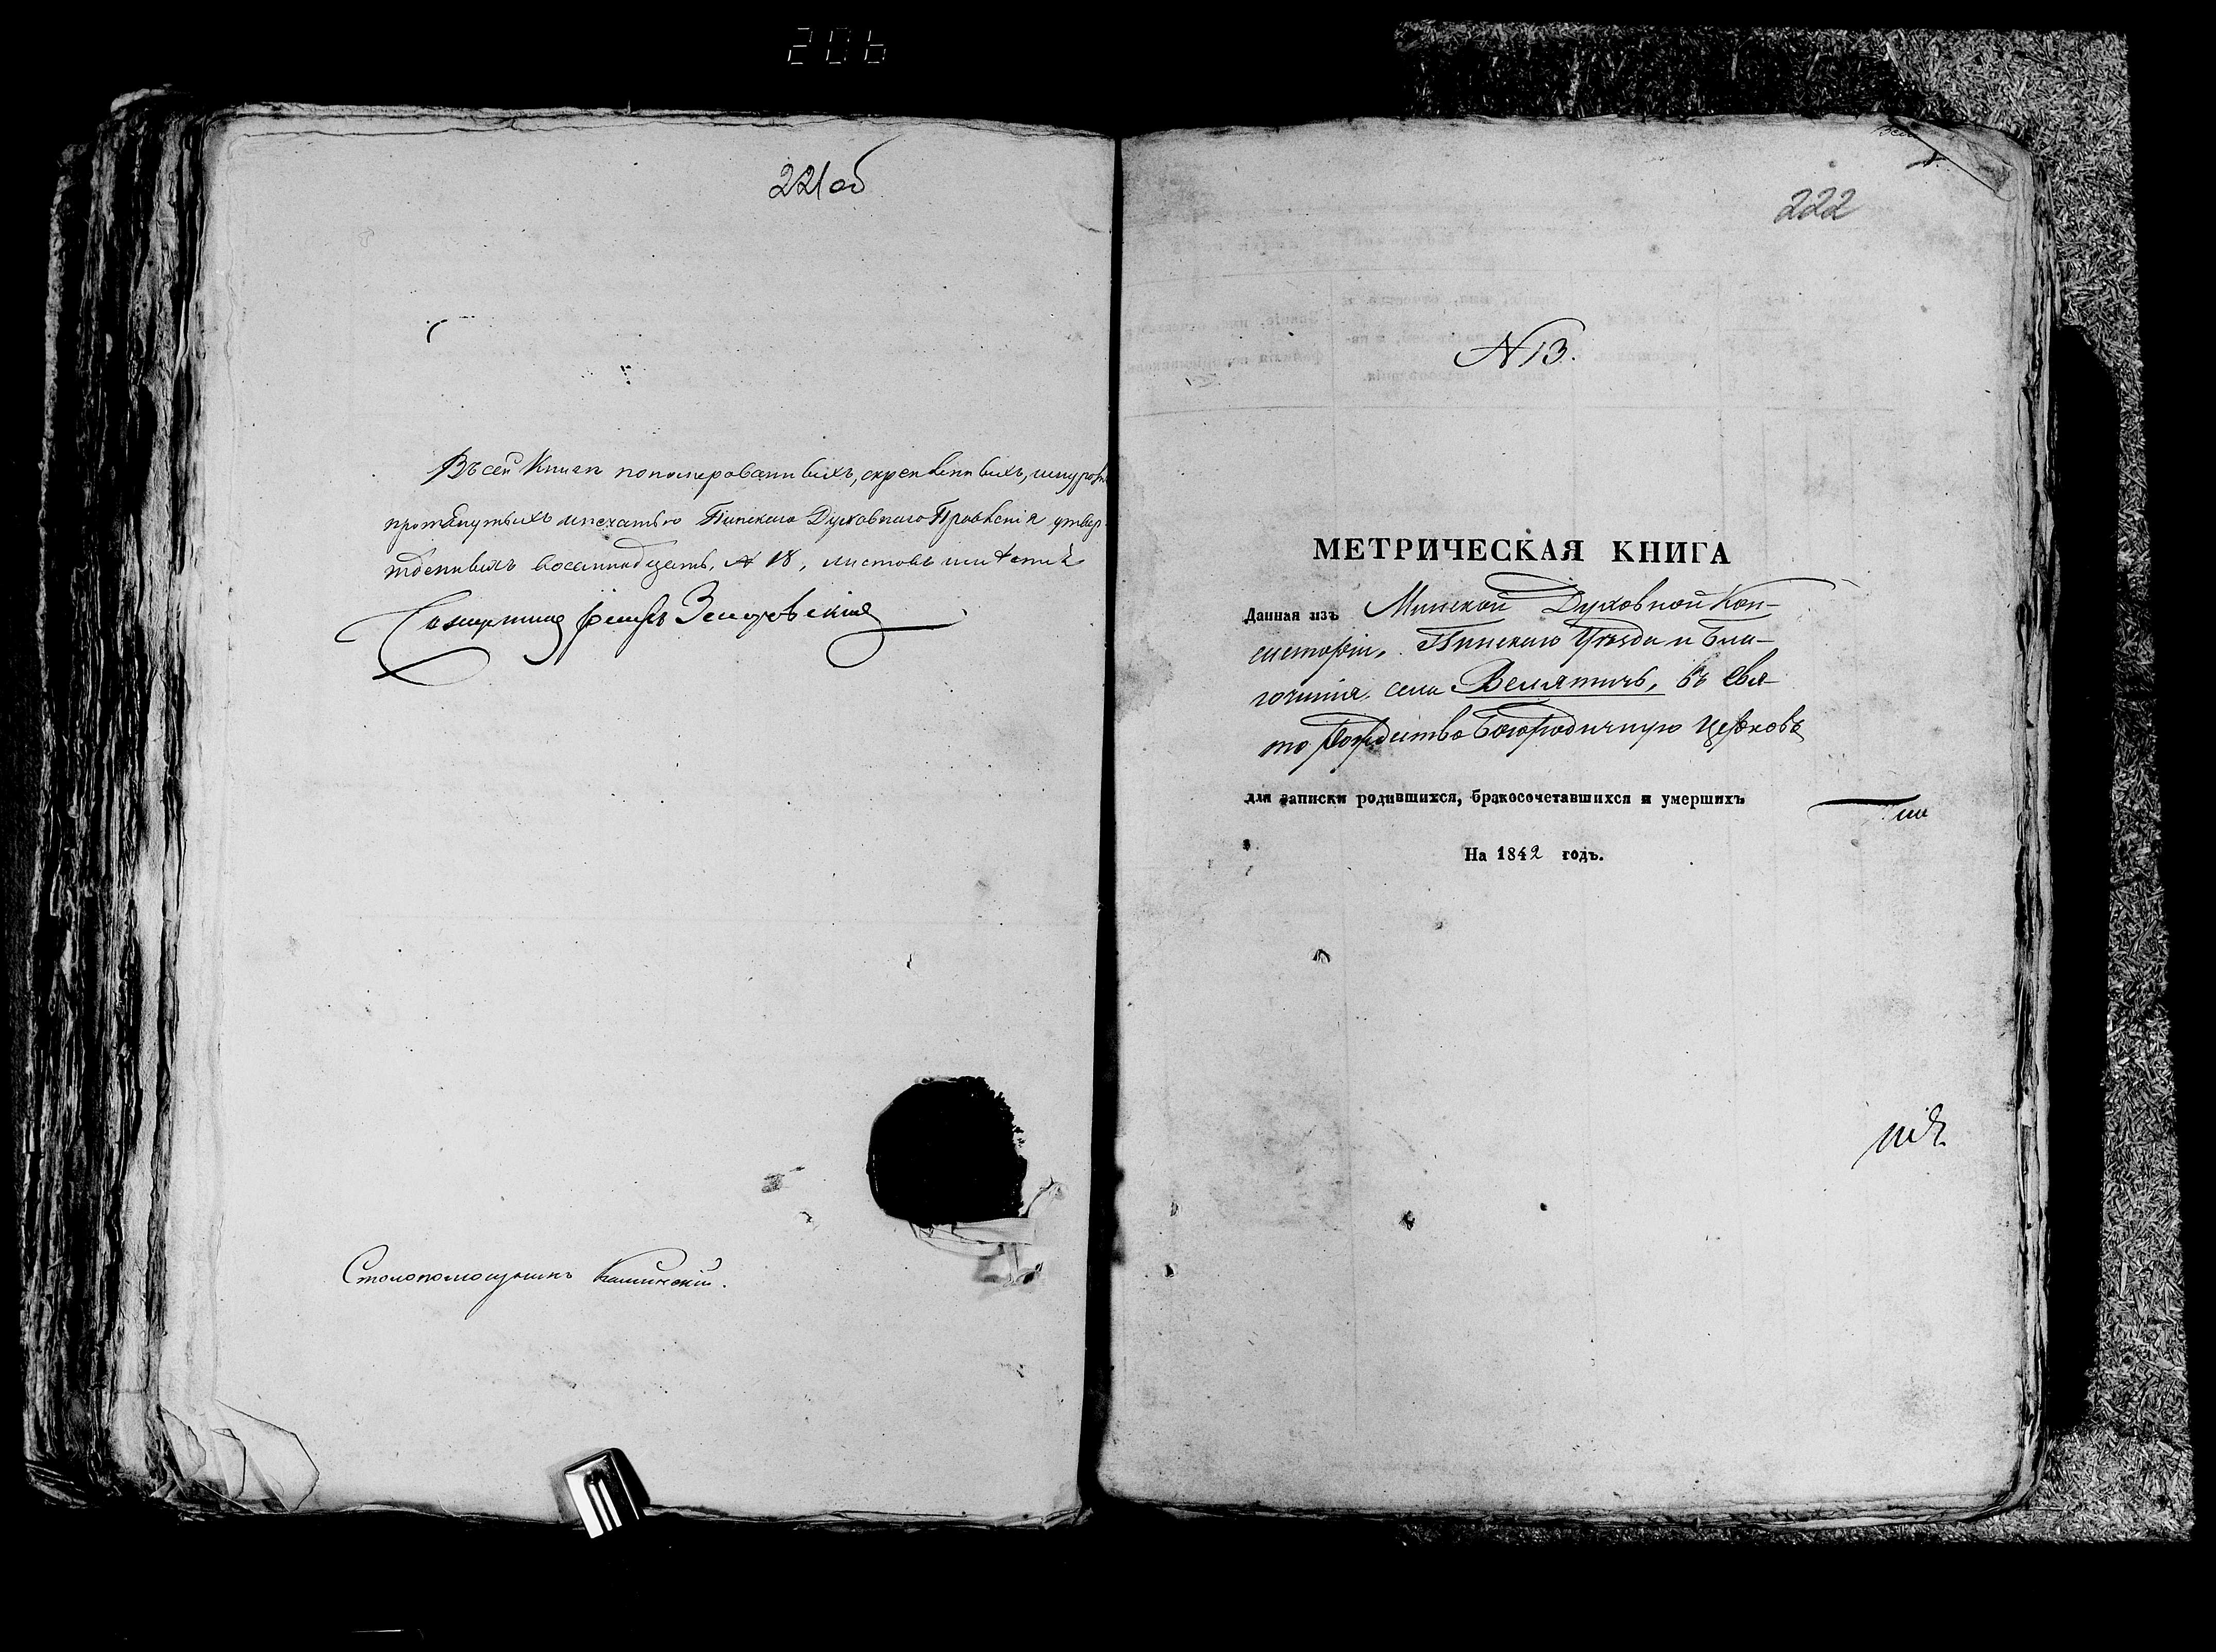 206
221 об
Въ сей Книгѣ пономерованныхъ, скрепленныхъ, шнуромъ
протянутыхъ и печатью Пинскаго Духовнаго Правленія утвер-
жденныхъ восемнадцать, № 18, листовъ
Столопомощникъ
222
N 13.
МЕТРИЧЕСКАЯ КНИГА
Данная изъ Минской Духовной Кон-
систоріи, Пинскаго Уѣзда и Бла-
гочинія, села Велятичь, въ Свя-
то Рождество Богородичную Церковь
для записки родившихся, бракосочетавшихся и умершихъ
На 1842 годъ.